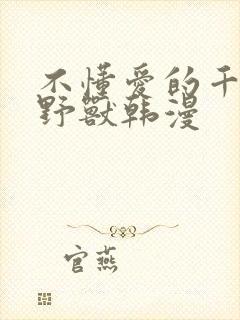 不懂爱的干
野兽韩漫
官燕